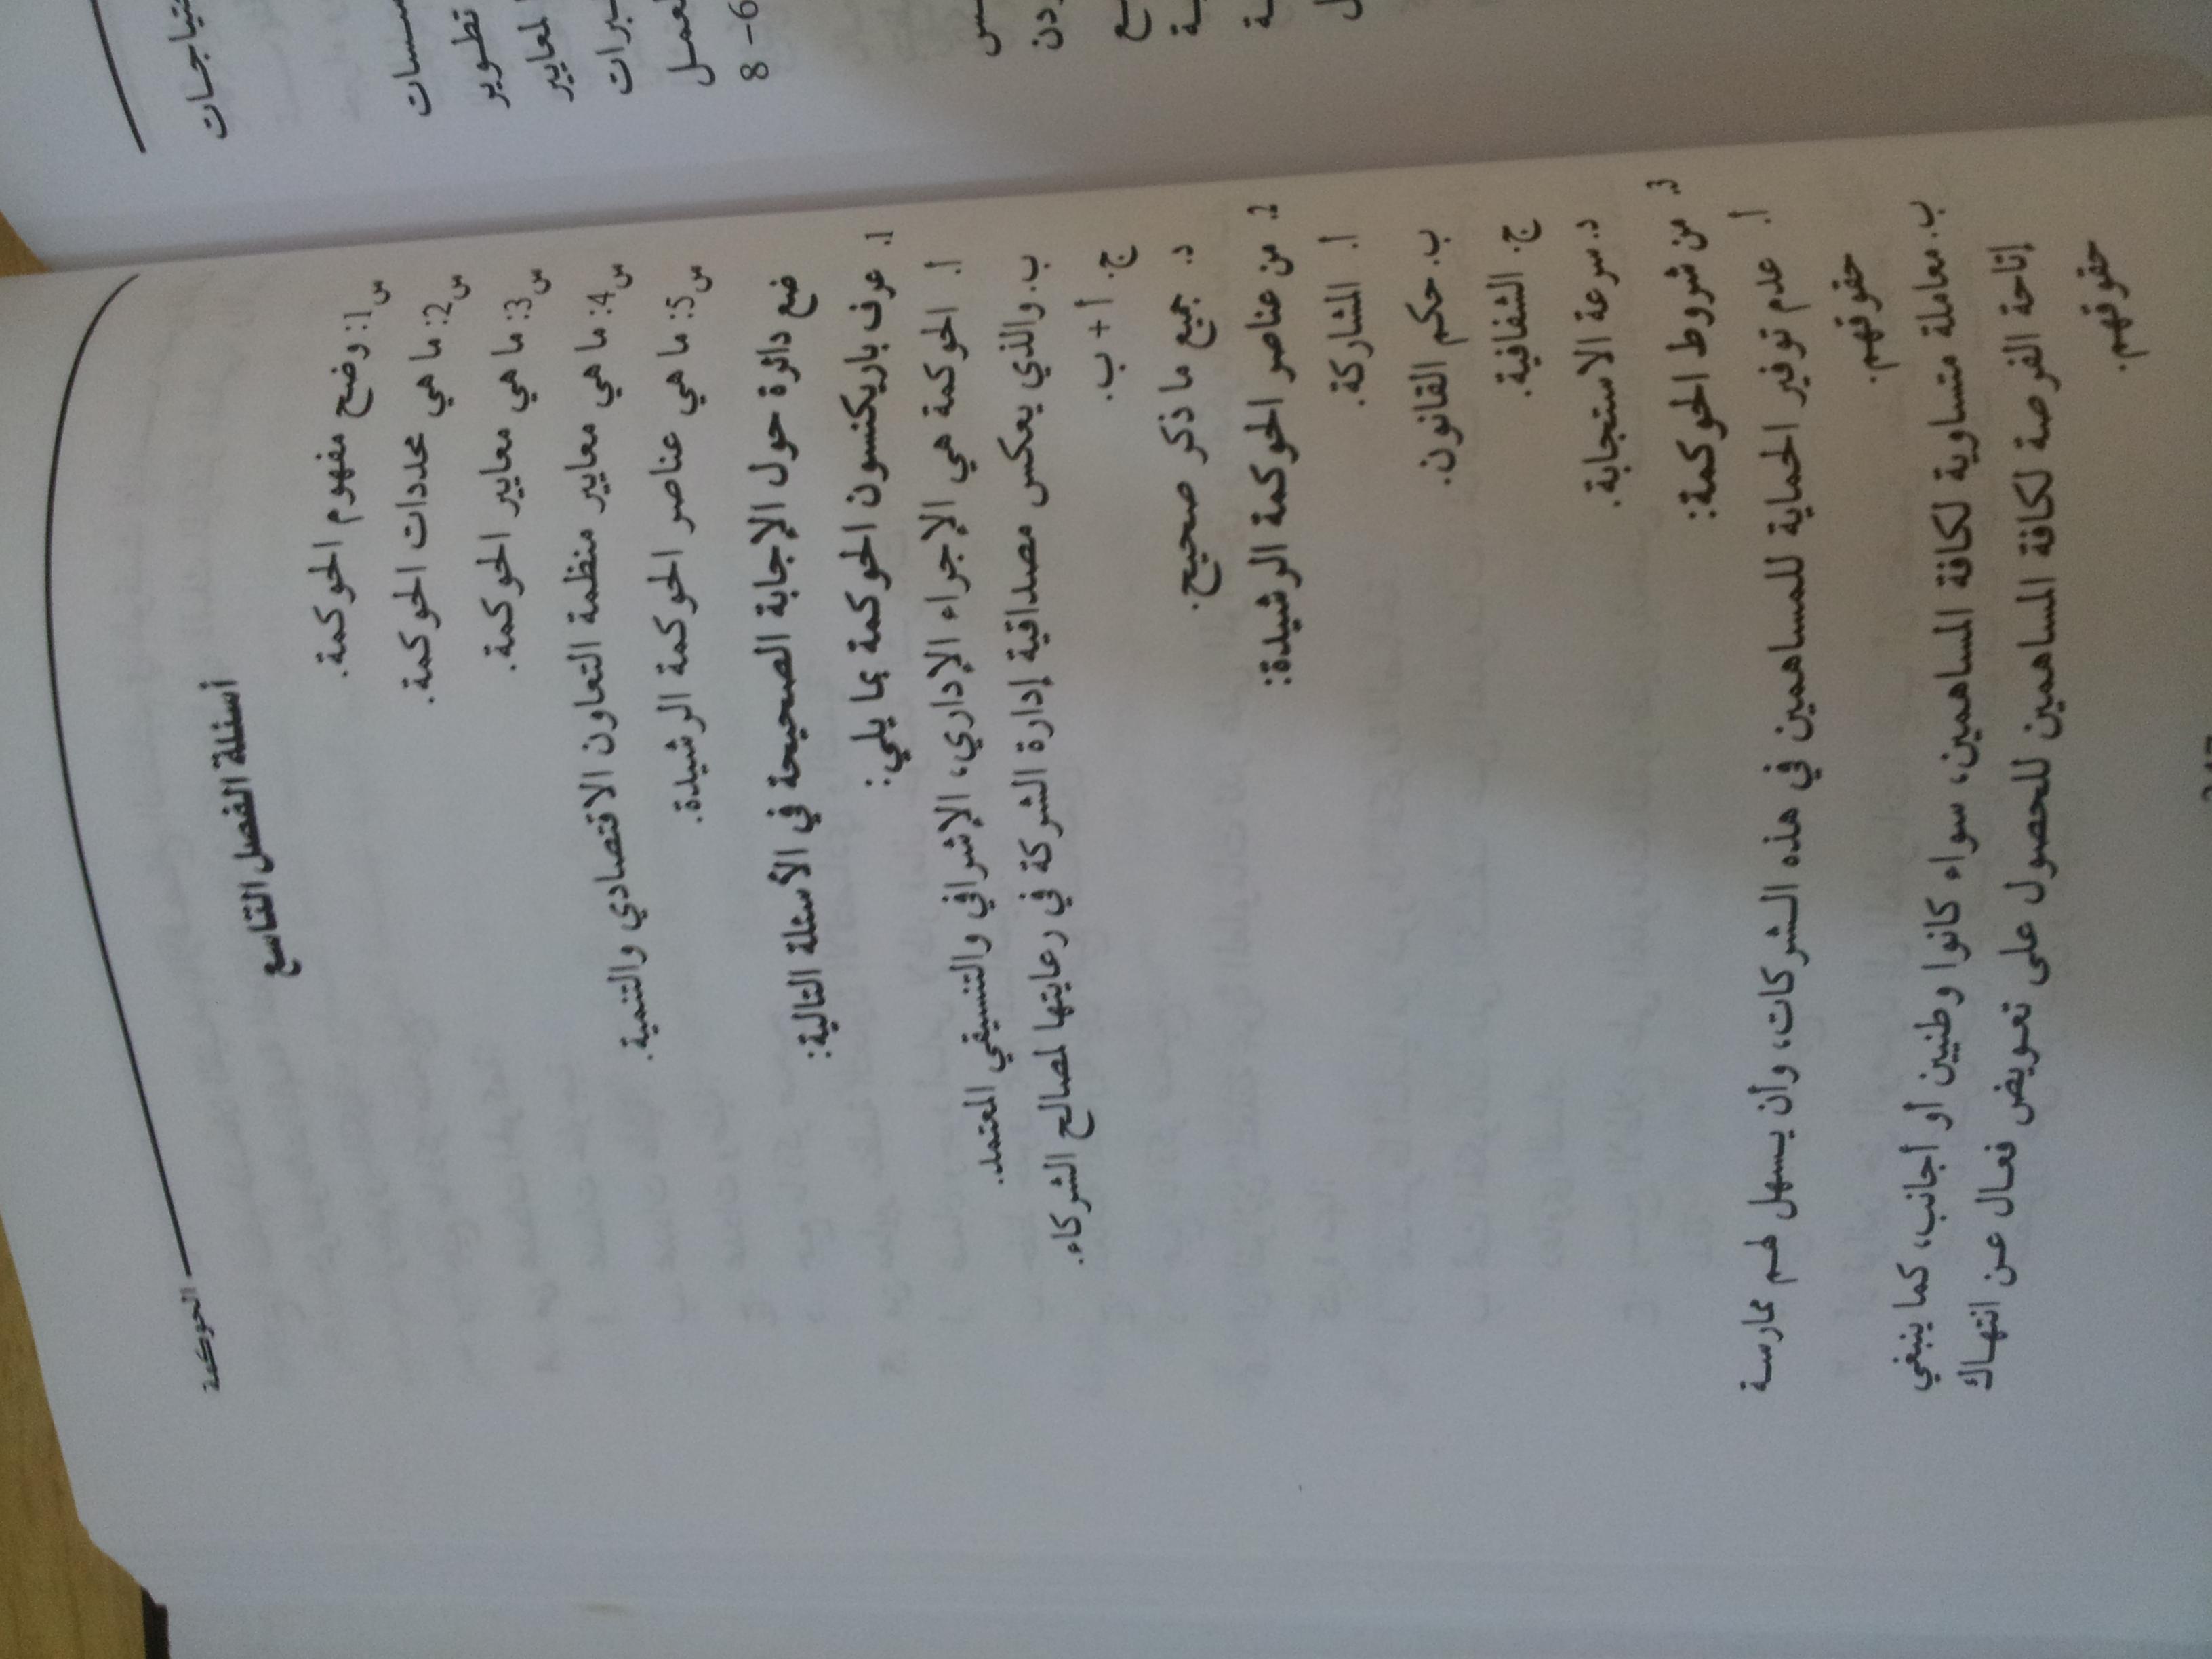 الحوكمة
أسئلة الفصل التاسع
س1: وضح مفهوم الحوكمة.
س2: ما هي محددات الحوكمة.
س3: ما هي معايير الحوكمة.
س4: ما هي معايير منظمة التعاون الاقتصادي والتنمية.
س5: ما هي عناصر الحوكمة الرشيدة.
ضع دائرة حول الإجابة الصحيحة في الأسئلة التالية:
1. عرف باريكنسون الحوكمة بما يلي:
أ. الحوكمة هي الإجراء الإداري، الإشرافي والتنسيقي المعتمد.
ب. والذي يعكس مصداقية إدارة الشركة في رعايتها لمصالح الشركاء.
ج. أ + ب.
د. جميع ما ذكر صحيح.
2. من عناصر الحوكمة الرشيدة:
أ. المشاركة.
ب. حكم القانون.
ج. الشفافية.
د. سرعة الاستجابة.
3. من شروط الحوكمة:
أ. عدم توفير الحماية للمساهمين في هذه الشركات، وأن يسهل لهم ممارسة
حقوقهم.
ب. معاملة متساوية لكافة المساهمين، سواء كانوا وطنيين أو أجانب، كما ينبغي
إتاحة الفرصة لكافة المساهمين للحصول على تعويض فعال عن انتهاك
حقوقهم.
تطوير
8 -6